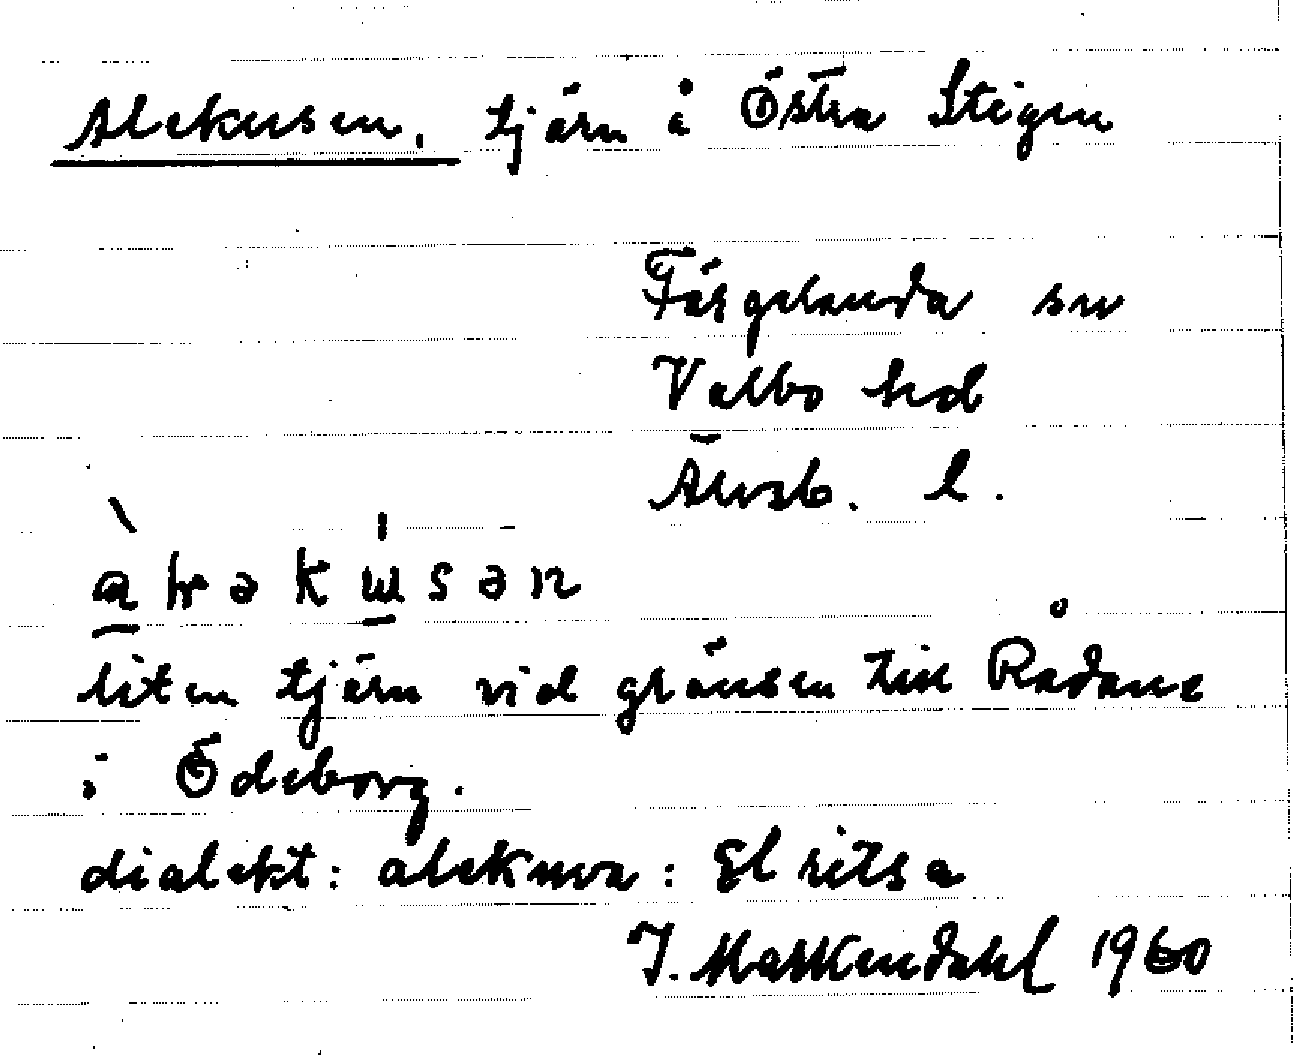 Alekusen, tjärn å Östra Stigen
Färgelanda sn
Valbo hd
Älvsb. l.
liten tjärn vid gränsen till Rådane
i Ödeborg.
dialekt: alekuva: Elritsa
1960